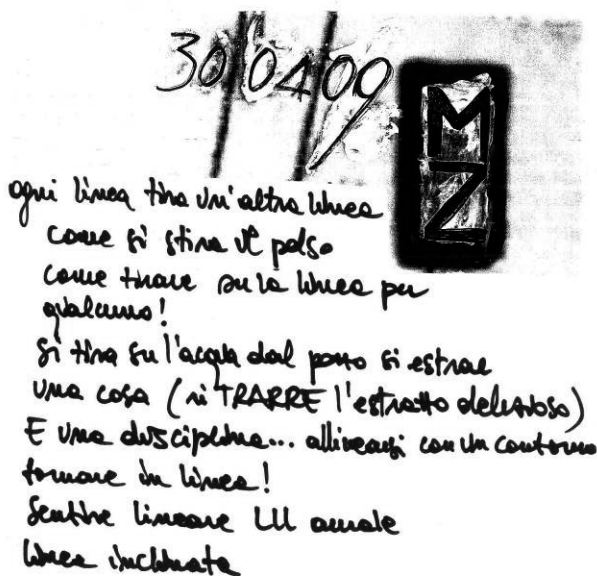 30/01/09
M
Z
ogni linea tira un'altra linea
come si stira il polso
come tirare su la linea per
qualcuno!
si tira su l'acqua dal pozzo si estrae
una cosa (ri TRARRE l'estratto
E una disciplina... allinearsi con un contorno
tornare in linea!
Sentire lineare LUI
linea inclinata